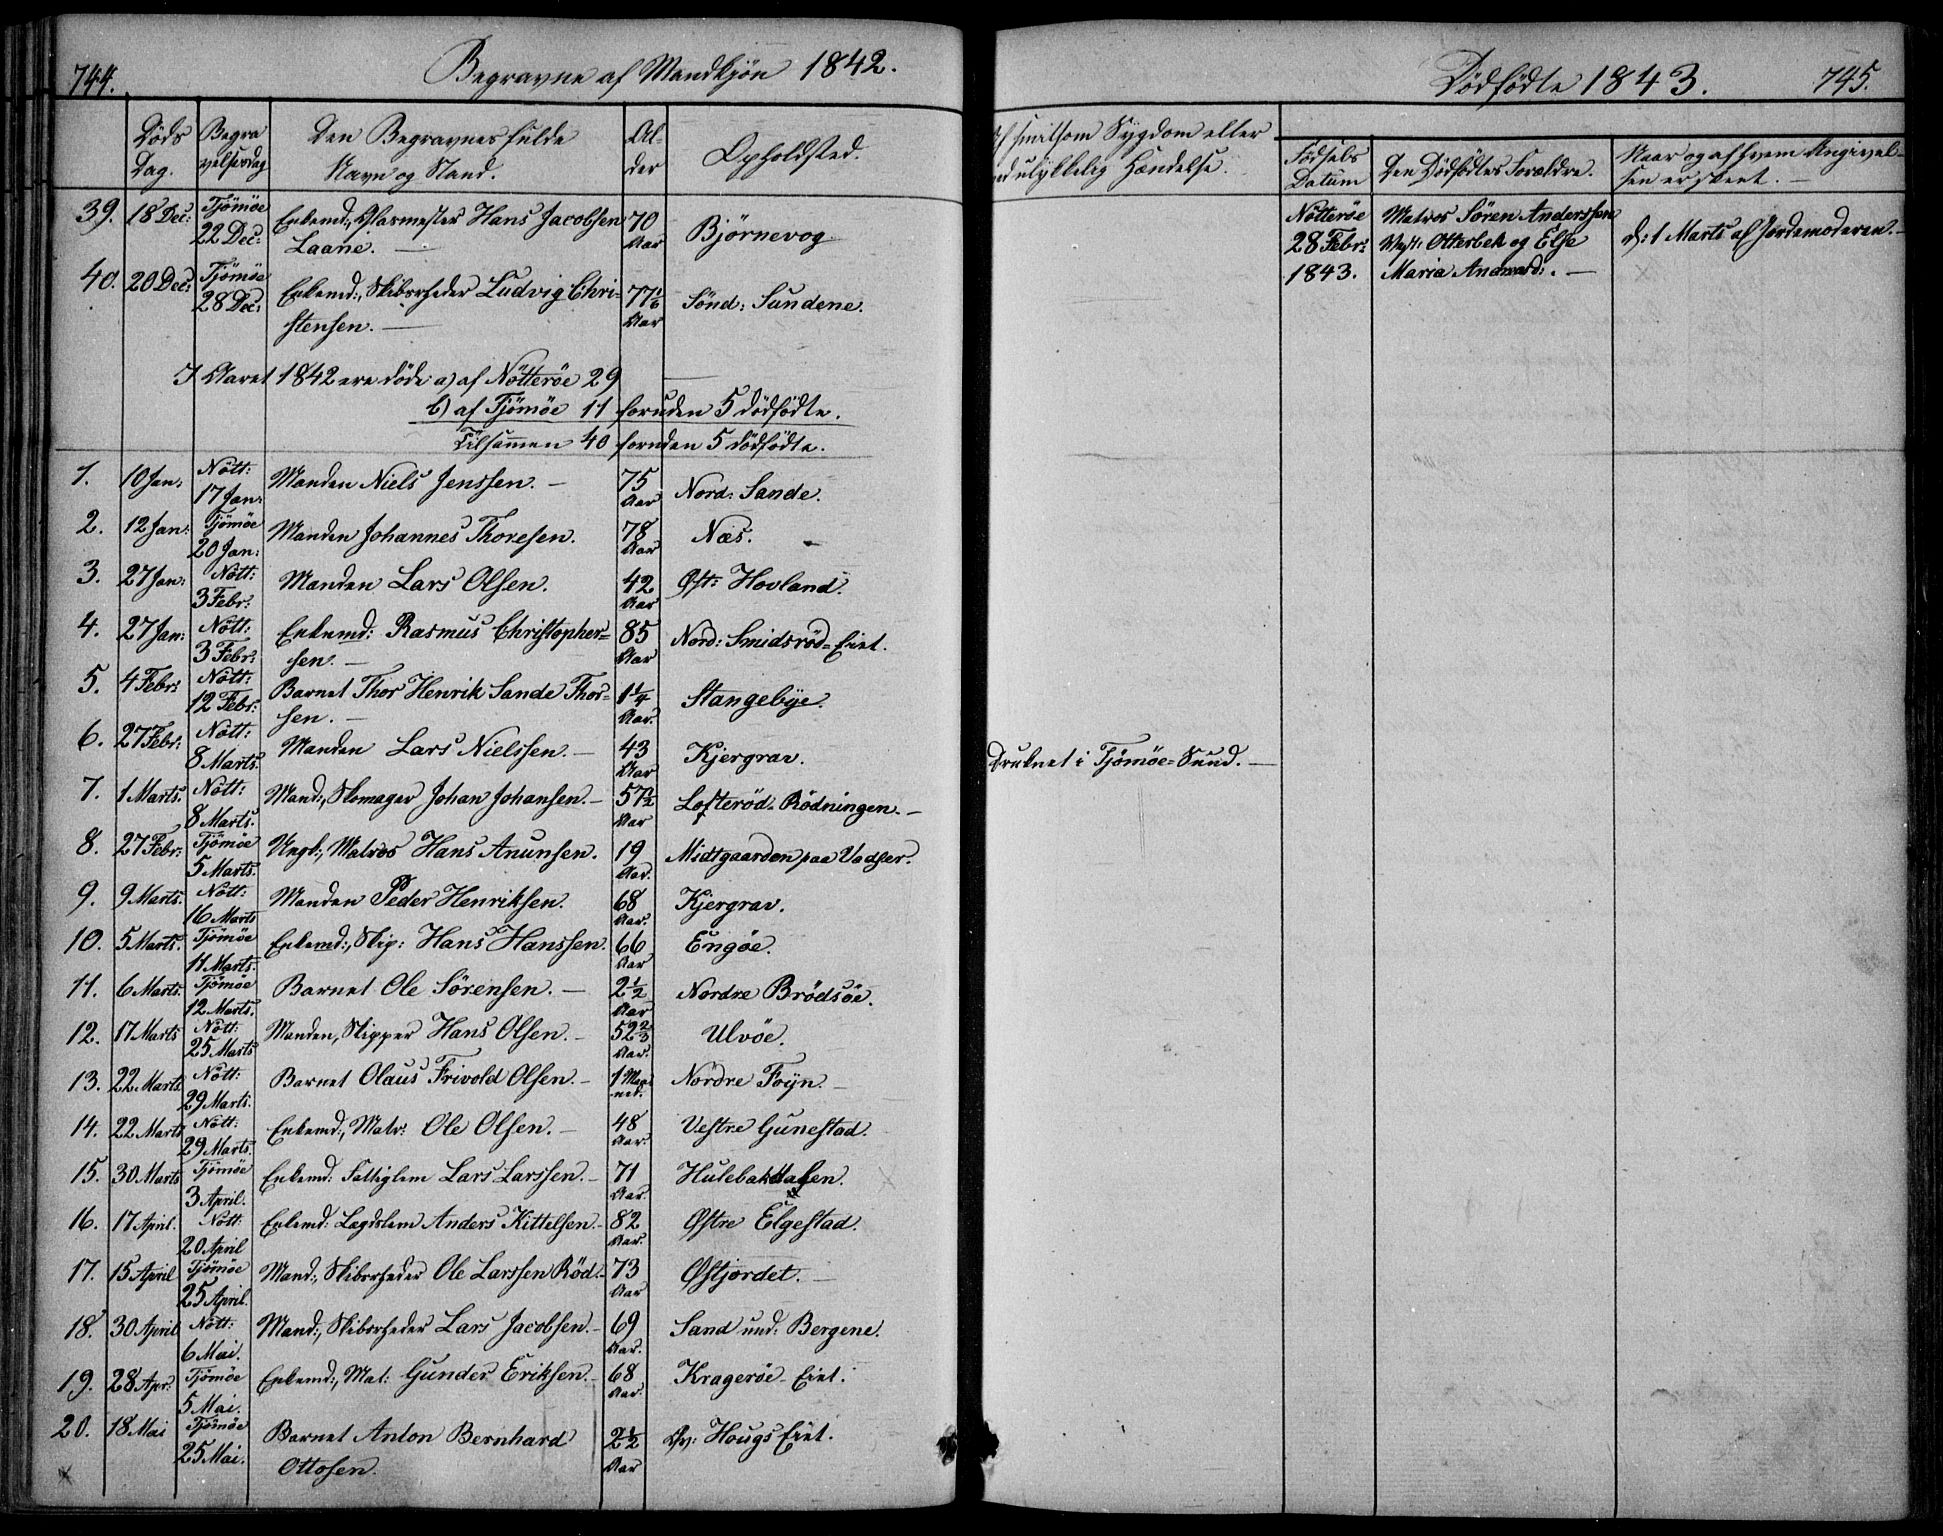 744.
Begravne af Mandkjön 1842.
Döds Dag.
Begravelsesdag
Den Begravnes fulde Navn og Stand.
Alder
Opholdsted.
39. 18 Dec: Tjömöe 22 Dec: Enkemd:, Glasmester Hans Jacobsen 70 Aar Bjørnevog
Laane. —
40. 20 Dec: Tjömöe 28 Dec: Enkemd:, Skibsrheder Ludvig Chri= 77 1/6 Aar Sönd: Sundene.
stensen. —
I Aaret 1842 ere döde a) af Nötteröe 29
b) af Tjömöe 11 foruden 5 dödfödte.
Tilsamen 40 foruden 5 dödfödte.
1. 10 Jan: Nött: 17 Jan: Manden Niels Jenssen. — 75 Aar Nord: Sande.
2. 12 Jan: Tjömöe 20 Jan: Manden Johannes Thoresen. 78 Aar Næs.
3. 27 Jan: Nött: 3 Febr: Manden Lars Olsen. 42 Aar Øst: Hovland.
4. 27 Jan: Nött: 3 Febr: Enkemd: Rasmus Christopher= 85 Aar Nord: Smidsröd=Eiet.
sen. —
5. 4 Febr: Nött: 12 Febr: Barnet Thor Henrik Sande Thor= 1 1/4 Aar. Stangebye.
sen. —
6. 27 Febr: Nött: 8 Marts. Manden Lars Nielssen. — 43 Aar Kjergrav.
7. 1 Marts. Nött: 8 Marts. Mand:, Skomager Johan Johansen. — 57 1/2 Aar Lofteröd=Rödningen. —
8. 27 Febr: Tjömöe 5 Marts. Ungk:, Matros Hans Anunsen. 19 Aar. Midtgaarden paa Vadser.
9. 9 Marts. Nött: 16 Marts Manden Peder Henriksen. 68 Aar. Kjergrav.
10. 5 Marts. Tjömöe 11 Marts. Enkemd:, Skip: Hans Hanssen. 66 Aar Engöe.
11. 6 Marts. Tjömöe 12 Marts. Barnet Ole Sørensen. — 2 1/2 Aar Nordre Brödsöe.
12. 17 Marts Nött: 25 Marts Manden, Skipper Hans Olsen. — 52 2/3 Aar. Ulvöe.
13. 22 Marts. Nött: 29 Marts. Barnet Olaus Frivold Olsen. — 1 Maanet. Nordre Foyn. —
14. 22 Marts Nött: 29 Marts. Enkemd:, Matr: Ole Olsen. — 48 Aar. Vestre Gunestad.
15. 30 Marts Tjömöe 3 April. Enkemd: Fattiglem Lars Larssen. — 71 Aar.
16. 17 April. Nött: 20 April Enkemd: Lægdslem Anders Kittelsen. — 82 Aar. Østre Elgestad.
17. 15 April Tjömöe 25 April. Mand:, Skibsrheder Ole Larssen Röd. — 73 Aar Østjordet. —
18. 30 April Nött: 6 Mai. Mand:, Skibsrheder Lars Jacobsen. — 69 Aar. Sand und: Bergene.
19. 28 Apr: Tjömöe 5 Mai. Enkemd:, Mat: Gunder Eriksen. — 68 Aar. Krageröe-Eiet.
20. 18 Mai Tjömöe 25 Mai. Barnet Anton Bernhard 2 1/2 Aar Hougs Eiet.
Ottosen.
Dödfödte 1843.
745.
Af smitsom Sygdom eller
ved ulykkelig Hændelse.
Födsels Datum
Den Dödfödtes Forældre.
Naar og af hvem Angivel=
sen er skeet. —
Nötteröe Matros Sören Anderssen
28 Febr: Vest: Otterbek og Else d: 1 Marts af Jordemoderen. —
1843. Maria —
Druknet i Tjömöe=Sund. —